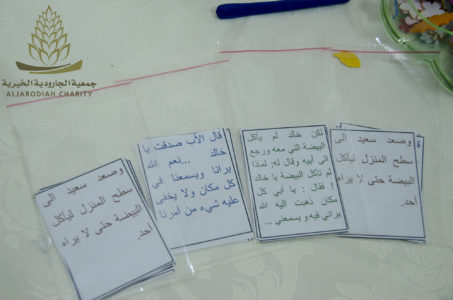 جمعية الجارودية الخيرية
ALJARODIAH CHARITY
وصعد سعيد الى
سطح المنزل لياكل
البيضة حتى لا يراه
أحد.
فقال الأب صدقت يا
خالد ...نعم الله
يرانا ويسمعنا في
كل مكان ولا يخفى
عليه شيء من أمرنا
لكن خالد لم يأكل
البيضة التي معه ورجع
الى أبيه وقال له: لماذا
لم تأكل البيضة يا خالد
! فقال : يا أبي كل
مكان ذهبت اليه الله
يراني فيه و يسمعني ...
وصعد سعيد الى
سطح المنزل لياكل
البيضة حتى لا يراه
أحد.